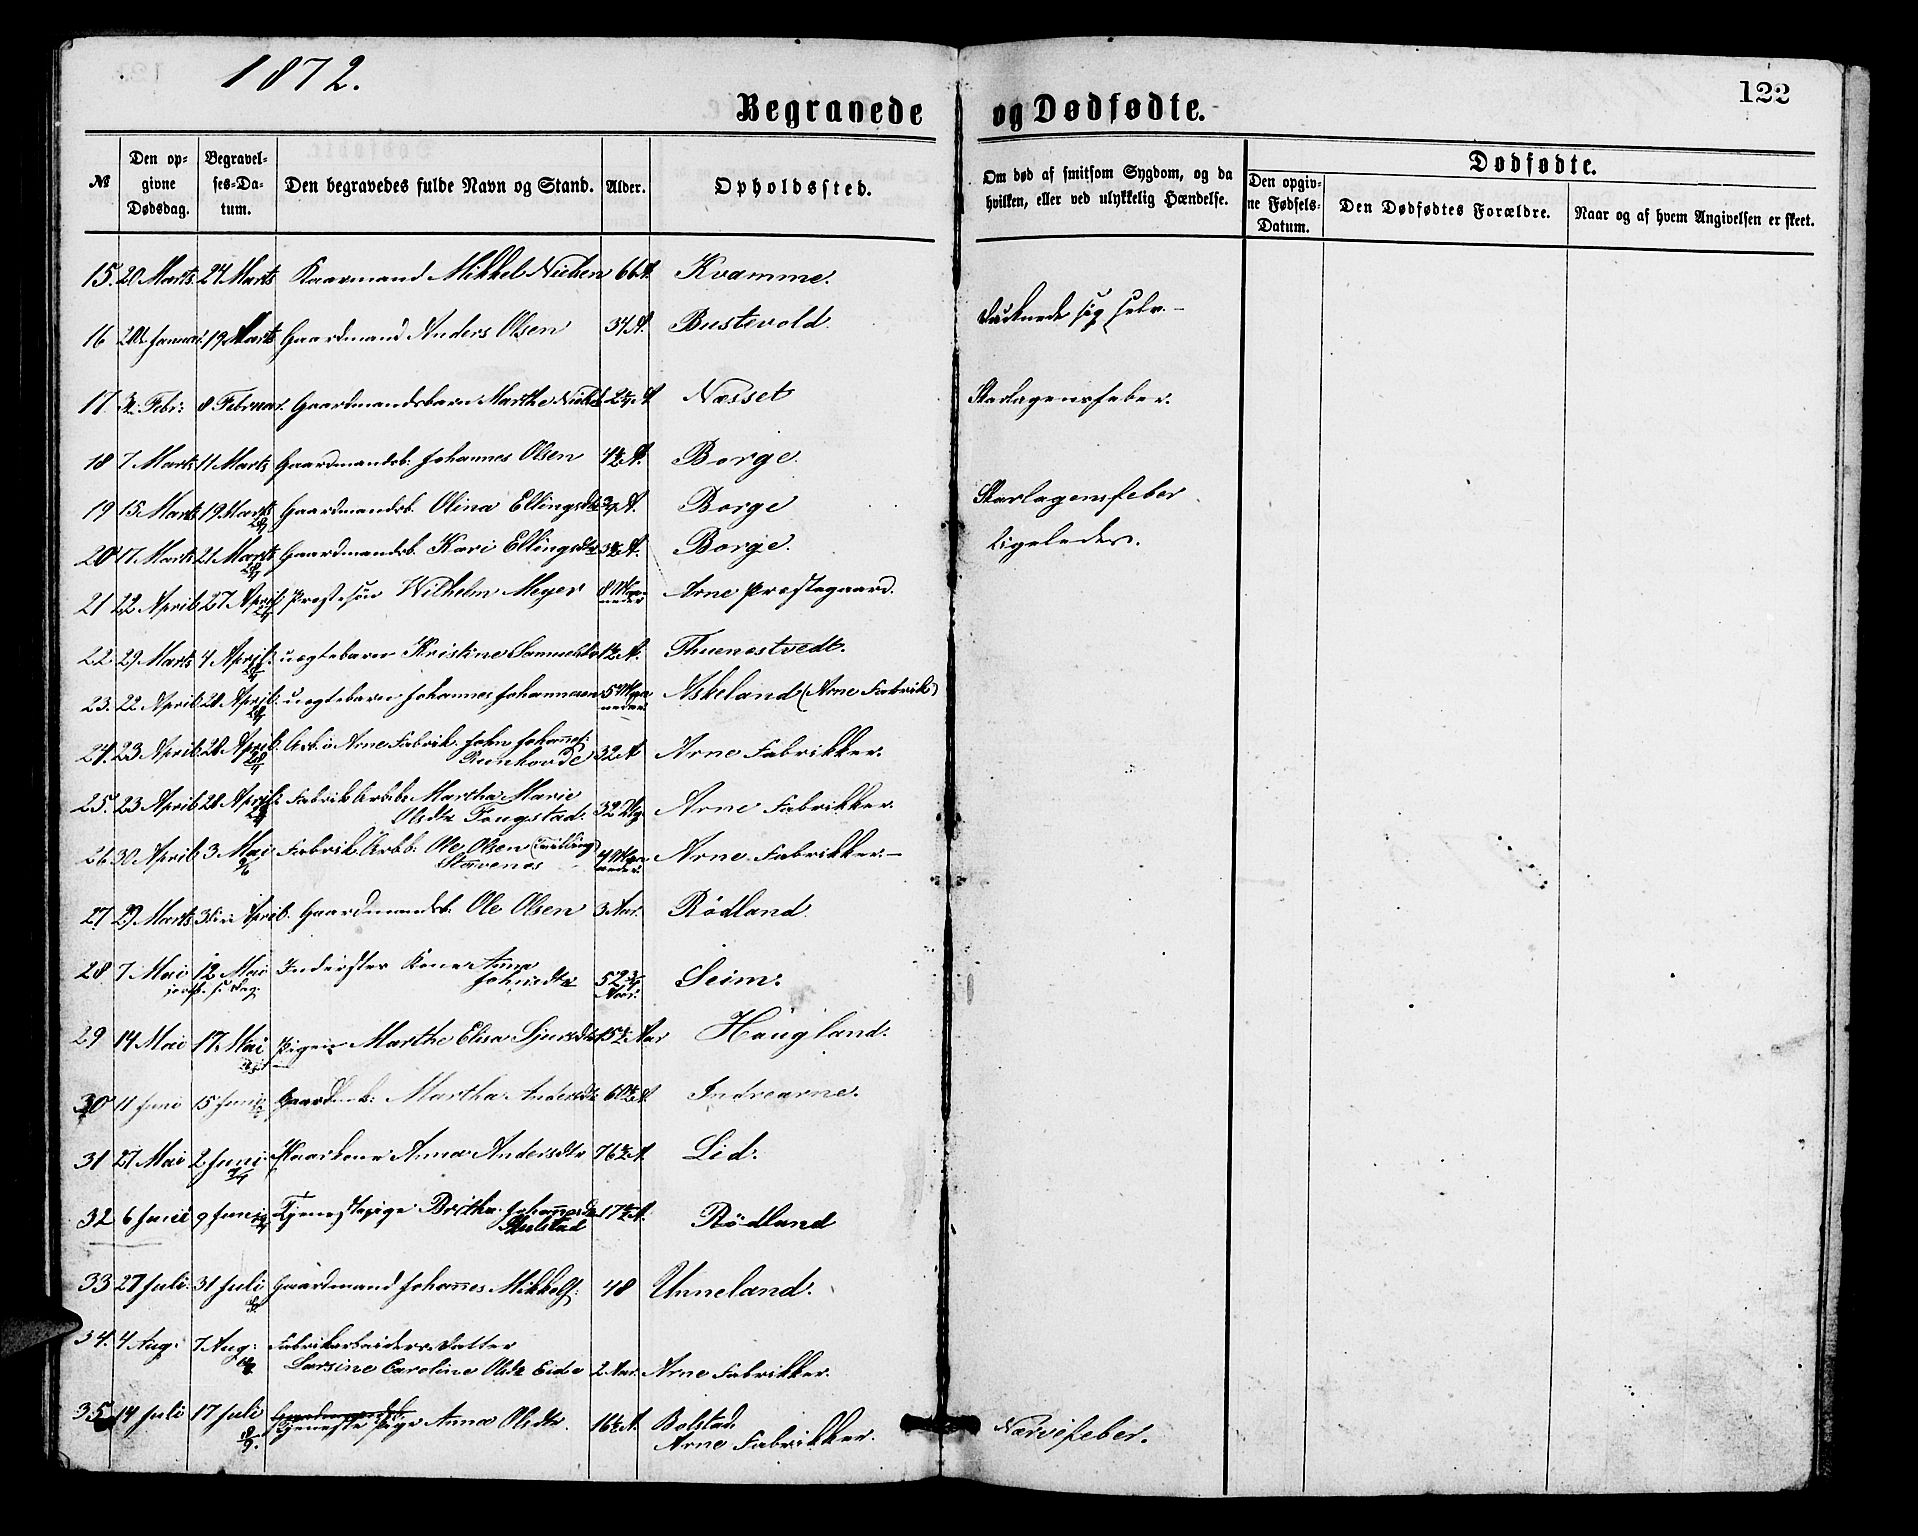 1872.
122
Begravede og Dødfødte.
№
Den opgivne Dødsdag.
Begravelses-Datum.
Den begravedes fulde Navn og Stand.
Alder.
Opholdssted.
Om død af smitsom Sygdom, og da hvilken, eller ved ulykkelig Hændelse.
Dødfødte.
Den opgivne Fødsels-Datum.
Den Dødfødtes Forældre.
Naar og af hvem Angivelsen er skeet.
15. 20 Marts 24 Marts Kaarmand Mikkel Nielsen 66 A. Kvamme.
16 Januar 19 Marts Gaardmand Anders Olsen 34 A. Bustevold. sig selv.
17 Febr: 8 Februar. Gaardmandsbarn Marthe Næsset Skarlagensfeber.
18 7 Marts 11 Marts Gaardmandsb: Johannes Olsen 4½ A. Borge.
19 15 Marts 19 Marts Gaardmandsb. Olina Ellingsdtr A. Borge Skarlagensfeber
20 17 Marts 21 Marts Gaardmandsb. Kari Ellingsdtr A. Borge. Ligeledes.
21 22 April 27 April Præstesøn Wilhelm Meyer 8 Maaneder Arne Præstegaard.
22. 29 Marts 4 April: uægtebarn Kristine Samuelsdtr 1½ A. Thuenestvedt.
23. 22 April 28 April: uægtebarn Johannes Johannesen 5 Maaneder Askeland (Arne Fabrik)
24. 23 April 28 April: Arb. i Arne Fabrik John Johannes:
Runhovde 32 A Arne Fabrikker.
25. 23 April 28 April: Fabrik Arbb: Martha Marie
Olsdtr Fougstad. 32 Arne Fabrikker
26 30 April 3 Mai Fabrik Arbb. Ole Olsen (Tvilling)
Stavenes 4 Maaneder. Arne Fabrikker.—
27 29 Marts 3die April. Gaardmandsb. Ole Olsen 3 Aar. Rödland
28. 7 Mai 12 Mai Inderstes Kone Anna
Johnsdtr 52 Aar. Seim.
29 14 Mai 17 Mai Pigen Marthe Elisa Sjursdtr 15½ Aar Haugland.
30 11 Juni 15 Juni Martha Andersdtr 60½ A Indrearne.
31 27 Mai 2 Juni: Kaarkone Anna Andersdtr 76½ A. Lid.
32 6 Juni 9 Juni Tjenestepige Brithe Johannesdtr
Rulstad 17½ A. Rödland
33 27 Juli. 31 Juli Gaardmand Johannes Mikkels: 48 Unneland.
34. 4 Aug: 7 Aug: Fabrikarbeiders Datter
Larsine Caroline Olsdtr Eide 2 Aar. Arne Fabrikker.
35 14 Juli 17 Juli Tjeneste Pige Anna Olsdtr. 16½ A. Bolstad.
Arne Fabrikker. Nervefeber.